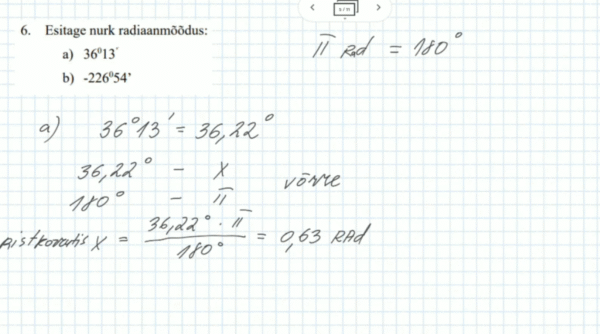 6. Esitage nurk radiaanmõõdus:
a) 36⁰13´
b) -226⁰54’
π rad = 180°
a) 36°13′ = 36,22°
36,22° - x
180° - π
võrre
ristkorrutis x = 36,22° · π / 180° = 0,63 RAD